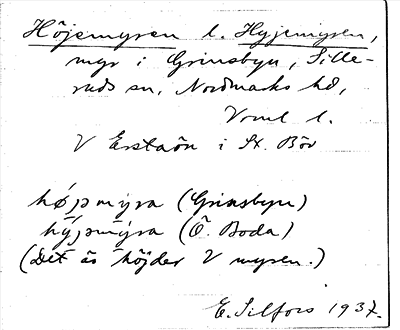 Höjemyren l. Hyjemyren,
myr i Grinsbyn, Sille-
ruds sn, Nordmarks hd,
Vrml l.
V Erstaön i St. Bör
höjmýra (Grinsbyn)
hýjmýra (Ö. Boda)
(Det äs höjder V myren.)
E. Silfors 1937.